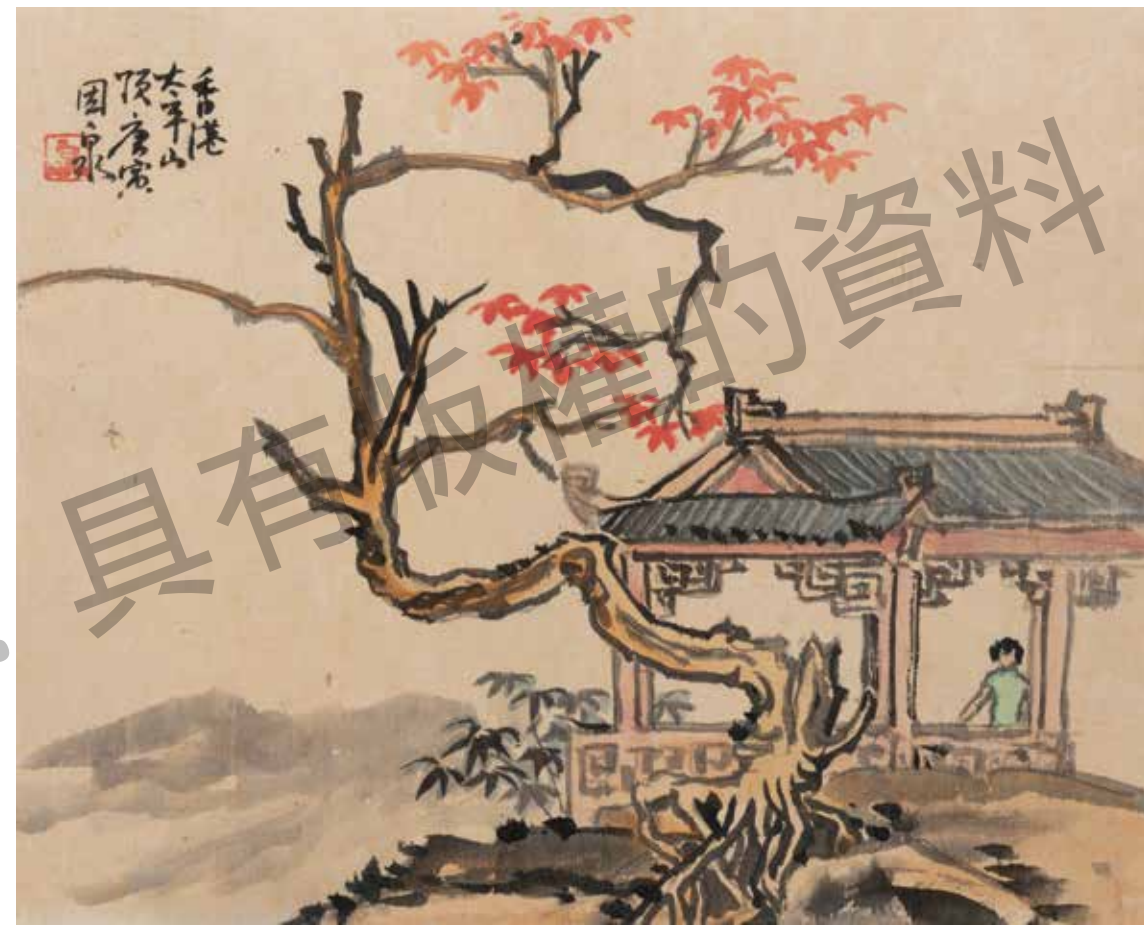 香港
太平山
頂庚寅
具有版權的資料